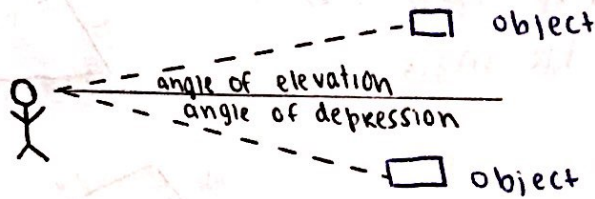 object
angle of elevation
angle of depression
object